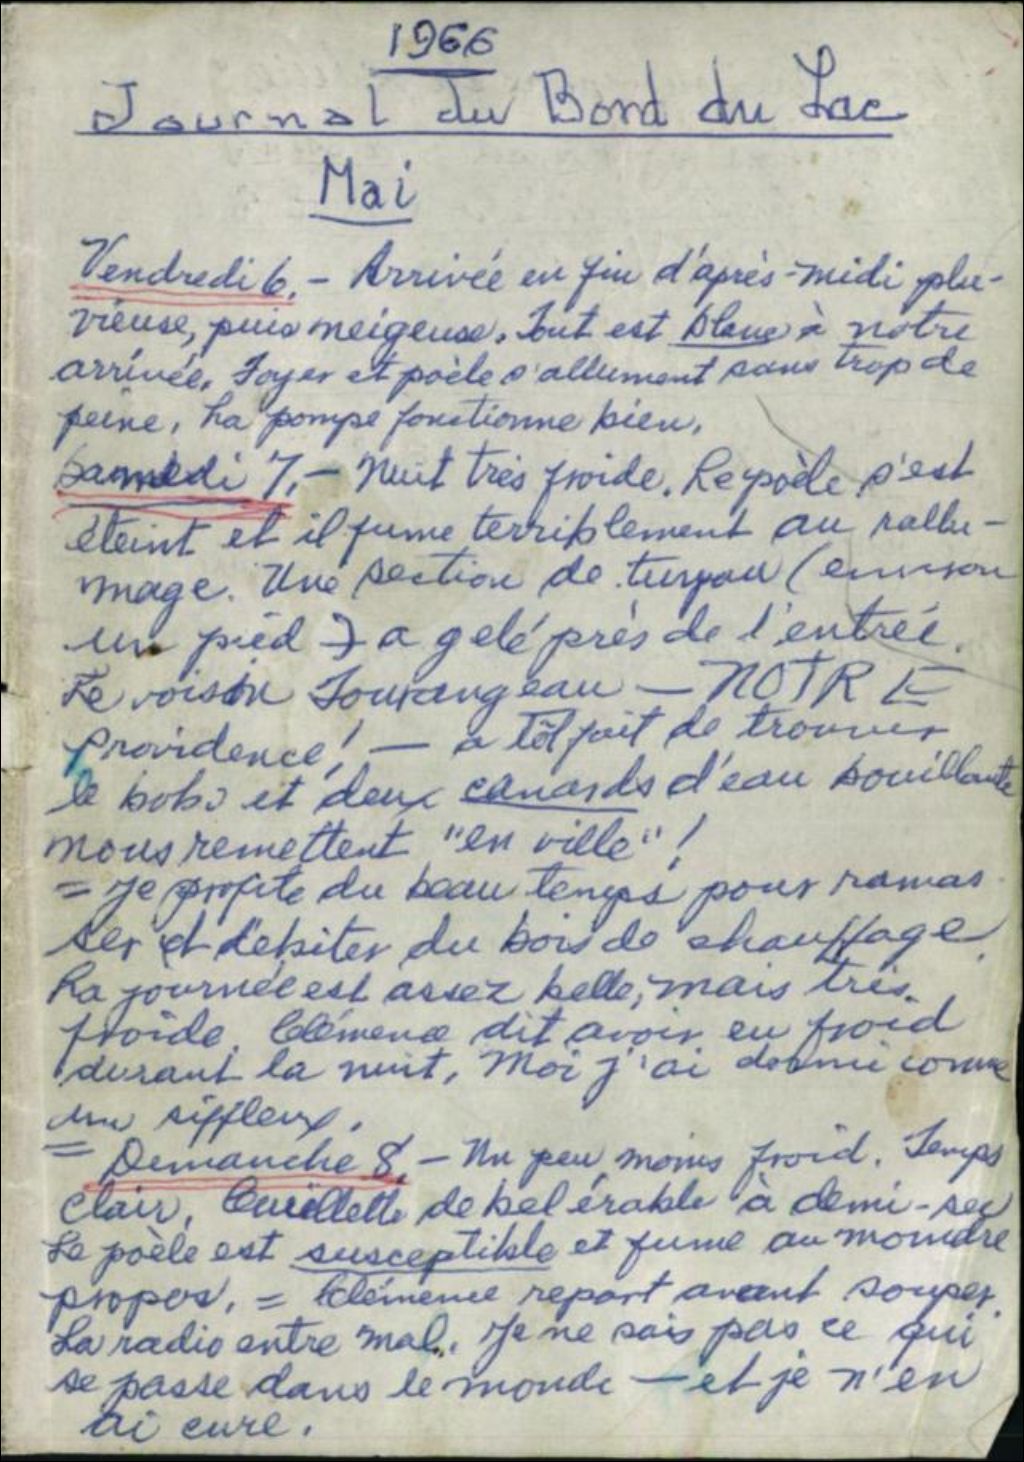 1966
Journal du Bord du Lac
Mai
Vendredi 6. - Arrivée en fin d'après-midi plu-
vieuse, puis neigeuse. Tout est blanc à notre
arrivée. Foyer et poèle s'allument sans trop de
peine. La pompe fonctionne bien.
Samedi 7. - Nuit très froide. Le poèle s'est
éteint et il fume terriblement au rallu-
mage. Une section de tuyau (environ
un pied) a gelé près de l'entrée.
Le voisin Tourangeau - NOTRE
Providence! - a tôt fait de trouver
le bobo et deux canards d'eau bouillante
nous remettent "en ville"!
= Je profite du beau temps pour ramas-
ser et débiter du bois de chauffage.
La journée est assez belle, mais très
froide. Clémence dit avoir eu froid
durant la nuit. Moi j'ai dormi comme
un siffleux.
= Dimanche 8. - Un peu moins froid. Temps
clair. Cueillette de bel érable à demi-sec
Le poèle est susceptible et fume au moindre
propos. = Clémence repart avant souper.
La radio entre mal. Je ne sais pas ce qui
se passe dans le monde - et je n'en
ai cure.